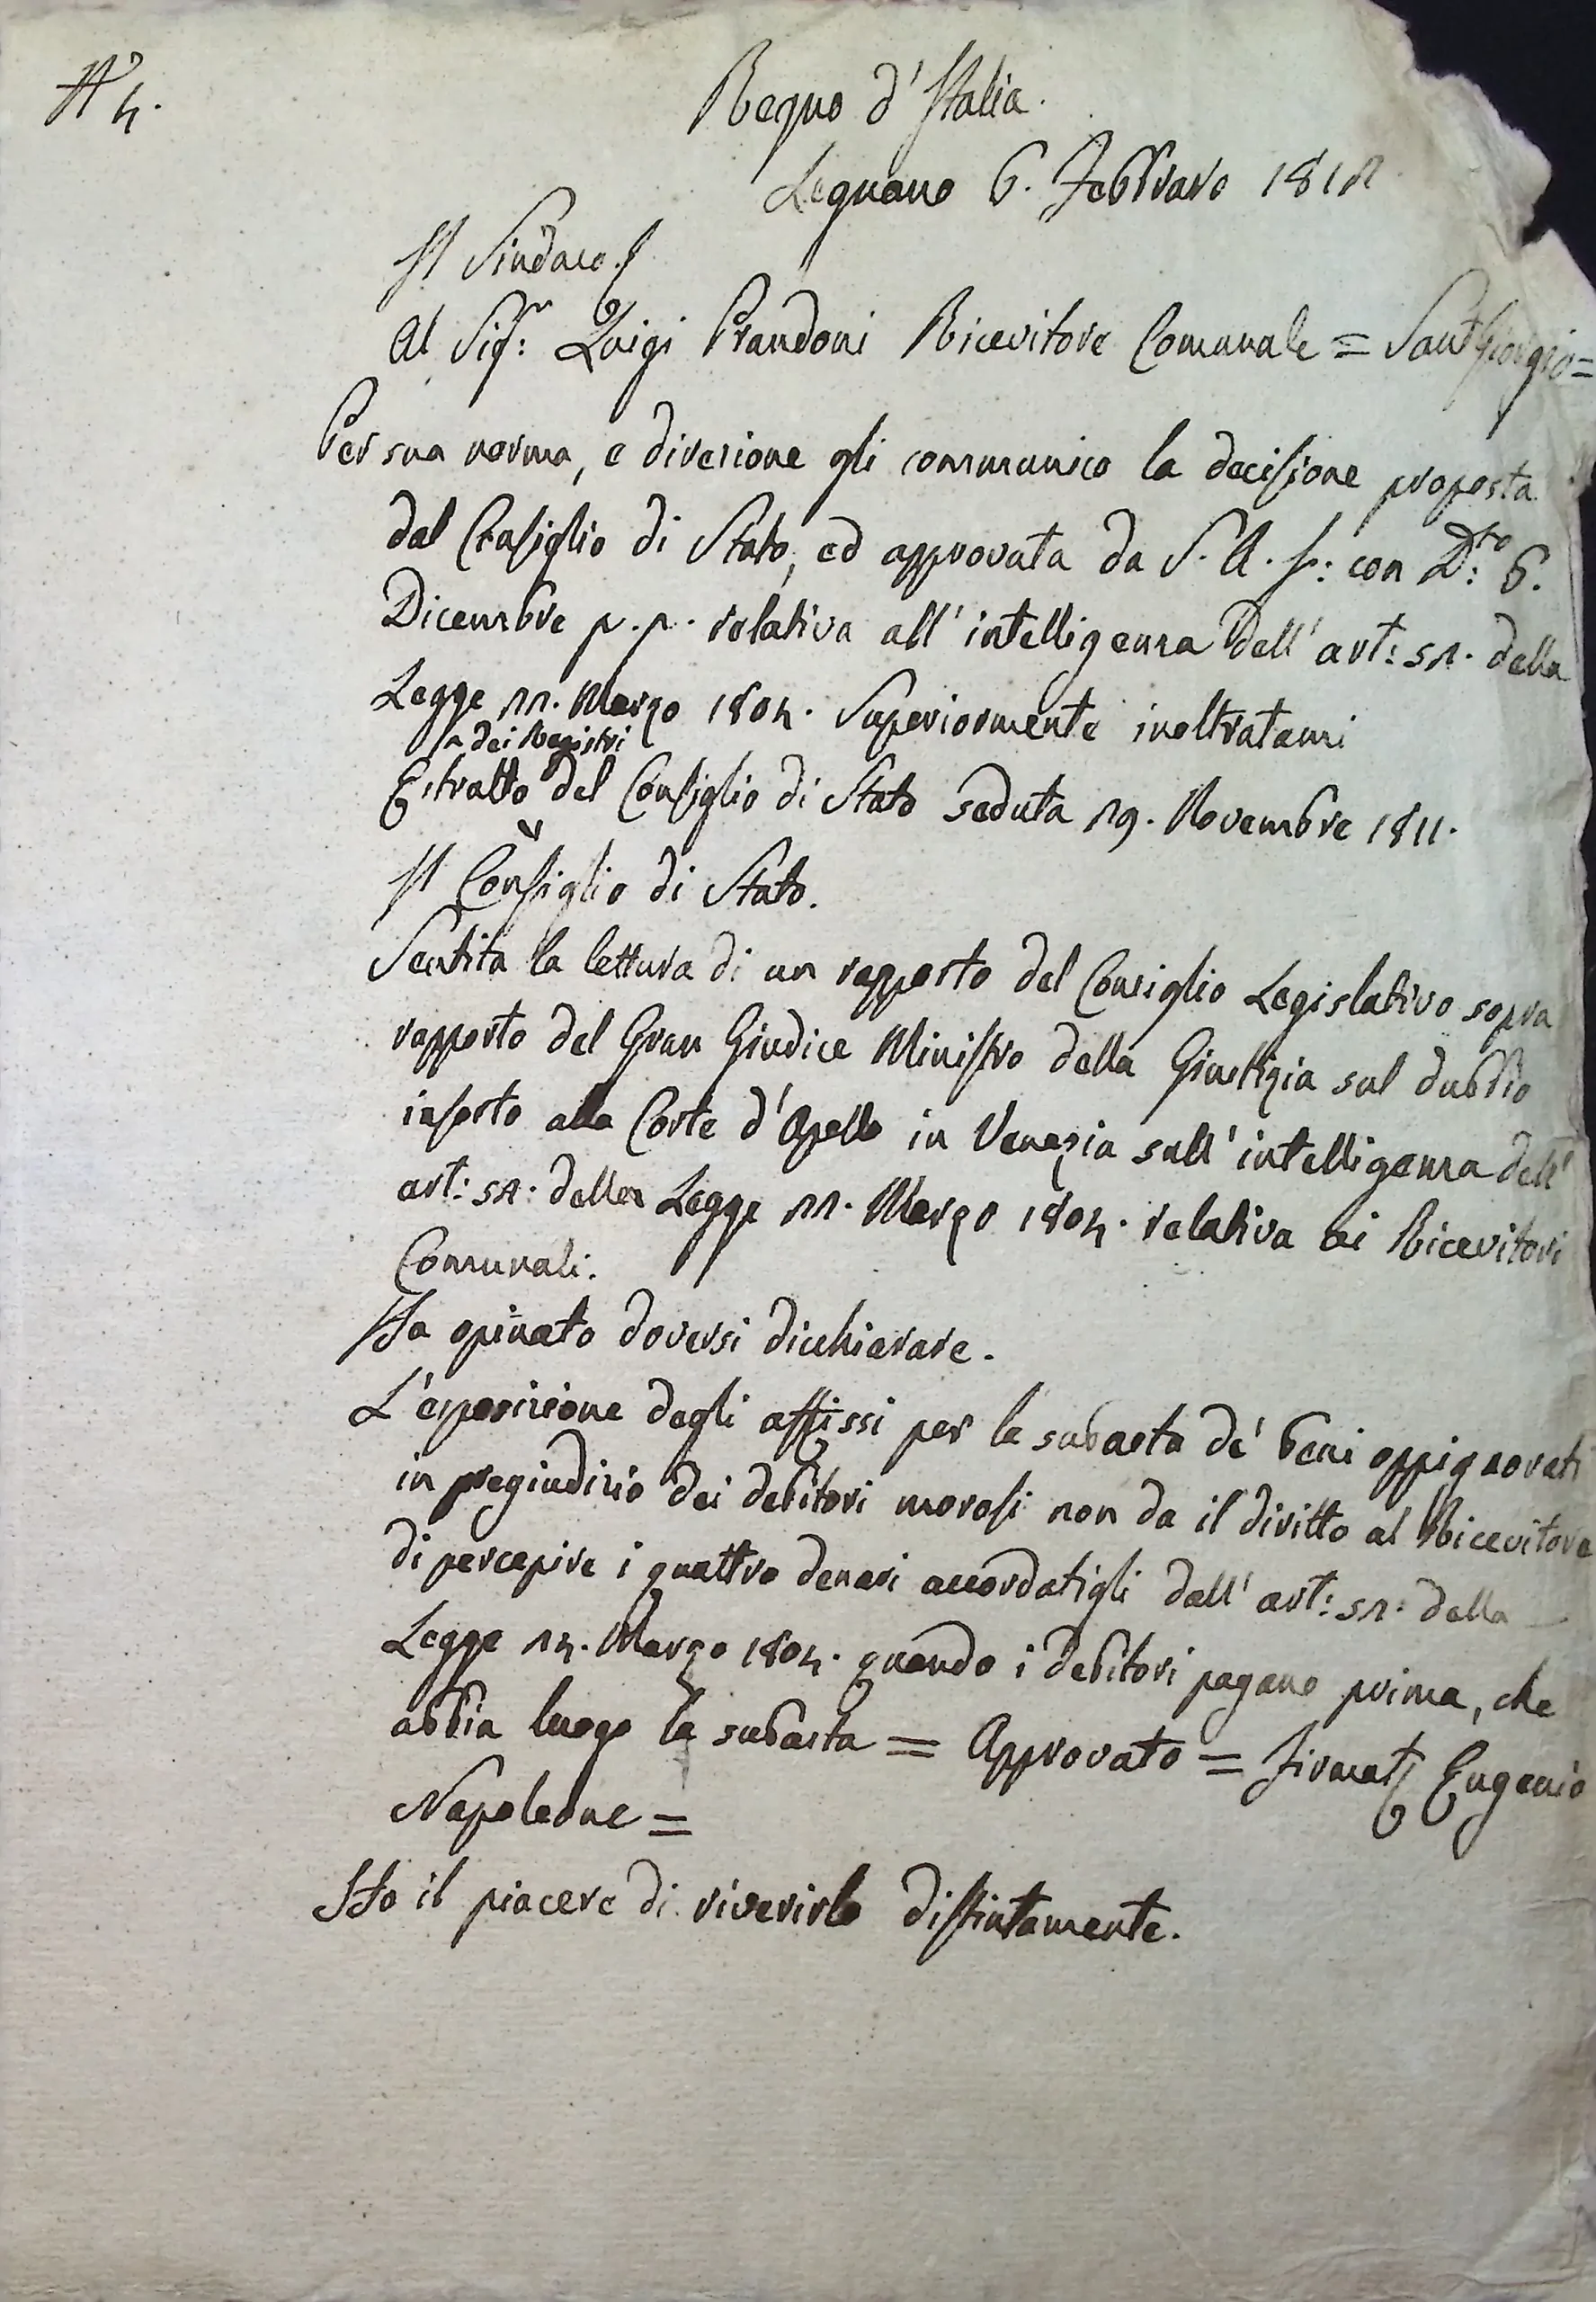 N° 4.
Regno d'Italia.
Legnano 6. Febbraro 1812
Il Sindaco
Al Sigr: Luigi Prandoni Ricevitore Comunale = Sant Giorgio =
Per sua norma, e direzione gli communico la decisione proposta
dal Consiglio di Stato, ed approvata da S. A. I: con D:to 6.
Dicembre p. p. relativa all'intelligenza dell'art: 52. della
Legge 22. Marzo 1804. Superiormente inoltratami
dei Registri
Estratto del Consiglio di Stato seduta 29. Novembre 1811.
Il Consiglio di Stato.
Sentita la lettura di un rapporto del Consiglio Legislativo sopra
rapporto del Gran Giudice Ministro della Giustizia sul dubbio
insorto alla Corte d'Apello in Venezia sull'intelligenza dell'
art: 52: della Legge 22. Marzo 1804. relativa ai Ricevitori
Comunali.
Ha opinato doversi dicchiarare.
L'esposizione degli affissi per la subasta de' beni oppignorati
in pregiudizio dei debitori morosi non da il diritto al Ricevitore
di percepire i quattro denari accordatigli dall'art: 52: della
Legge 24. Marzo 1804. quando i debitori pagano prima, che
abbia luogo la subasta = Approvato = Firmat Eugenio
Napoleone =
Ho il piacere di riverirlo distintamente.